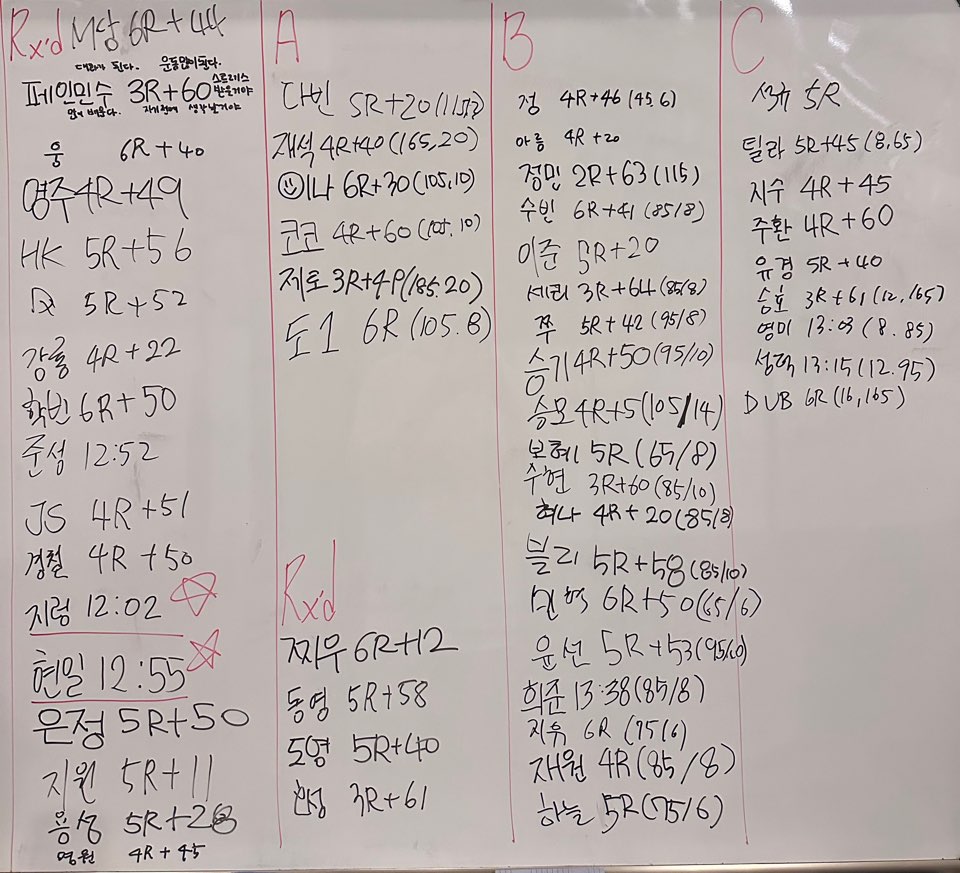 Rx'd M상 6R+44
대리가 된다. 운동인이된다.
페인민수 3R+60 스트레스 받을거야
언어 배운다. 자기전에 생각날거야
웅 6R+40
영주 4R+49
HK 5R+56
5R+52
강룡 4R+22
학빈 6R+50
준성 12:52
JS 4R+51
경철 4R+50
지렁 12:02
현일 12:55
은정 5R+50
지원 5R+11
용성 5R+28
명원 4R+45
A
다빈 5R+20
재석 4R+40 (165,20)
이나 6R+30 (105,10)
코코 4R+60 (105,10)
제로 3R+49 (185.20)
도1 6R (105.8)
Rx'd
찌우 6R+12
동영 5R+58
도영 5R+40
한성 3R+61
B
정 4R+46 (45.6)
아름 4R+20
정민 2R+63 (115)
수빈 6R+41 (85/8)
이준 5R+20
세리 3R+64 (85/8)
쭈 5R+42 (95/8)
승기 4R+50 (95/10)
승모 4R+5 (105/14)
보혜 5R (65/8)
수현 3R+60 (85/10)
혀나 4R+20 (85/8)
블리 5R+58 (85/10)
민혁 6R+50 (65/6)
윤선 5R+53 (95/10)
희준 13:38 (85/8)
지유 6R (75/6)
재원 4R (85/8)
하늘 5R (75/6)
C
5R
틸라 5R+45 (8,65)
지수 4R+45
주환 4R+60
유경 5R+40
승호 3R+61 (12,165)
영미 13:03 (8.85)
성혁 13:15 (12.95)
DUB 6R (16,165)